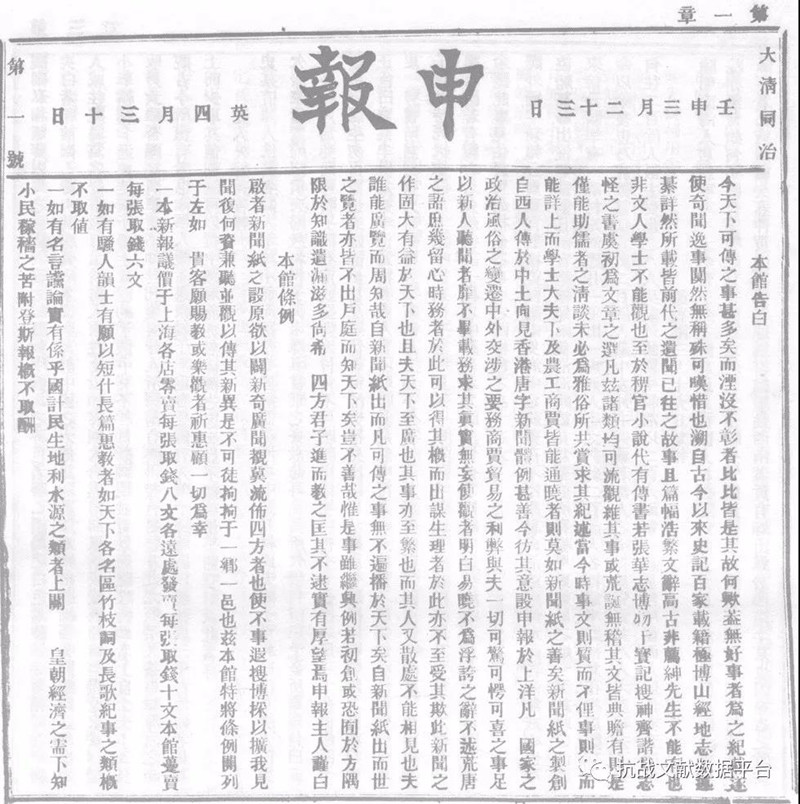 第一章
大清同治
壬申三月二十三日
申報
英四月三十日
第一號
本館告白
今天下可傳之事甚多矣而湮沒不彰者比比皆是其故何歟蓋無好事者爲之紀
使奇聞逸事闃然無稱殊可嘆惜也溯自古今以來史記百家載籍極博山經地志
綦詳然所載皆前代之遺聞已往之故事且篇幅浩繁文辭高古非薦紳先生不能也
非文人學士不能觀也至於稗官小說代有傳書若張華志博物干寶記搜神齊諧志
怪之書虞初爲文章之選凡茲諸類均可流觀維其事或荒誕無稽其文皆典贍有則是
僅能助儒者之清談未必爲雅俗所共賞求其紀述當今時事文則質而不俚事則而
能詳上而學士大夫下及農工商賈皆能通曉者則莫如新聞紙之善矣新聞紙之製創
自西人傳於中土向見香港唐字新聞體例甚善今仿其意設申報於上洋凡　國家之
政治風俗之變遷中外交涉之要務商賈貿易之利弊與夫一切可驚可愕可喜之事足
以新人聽聞者靡不畢載務求其眞實無妄使觀者明白易曉不爲浮誇之辭不述荒唐
之語庶幾留心時務者於此可以得其概而出謀生理者於此亦不至受其欺此新聞之
作固大有益於天下也且夫天下至廣也其事亦至繁也而其人又散處不能相見也夫
誰能廣覽而周知哉自新聞紙出而凡可傳之事無不遍播於天下矣自新聞紙出而世
之覽者亦皆不出戶庭而知天下矣豈不善哉惟是事雖繼興例若初創或恐囿於方隅
限於知識遺漏滋多尚希　四方君子進而教之匡其不逮實有厚望焉申報主人謹白
本館條例
啟者新聞紙之設原欲以闢新奇廣聞覩冀流佈四方者也使不事遐搜博採以擴我見
聞後何資兼聽並觀以傳其新異是不可徒拘拘于一鄉一邑也茲本館特將條例開列
于左如　貴客願賜教或乘徵者祈惠顧一切爲幸
一本新報議價于上海各店零賣每張取錢八文各遠處發賣每張取錢十文本館躉賣
每張取錢六文
一如有騷人韻士有願以短什長篇惠教者如天下各名區竹枝詞及長歌紀事之類概
不取值
一如有名言讜論實有係乎國計民生地利水源之類者上關　皇朝經濟之需下知
小民稼穡之苦附登斯報概不取酬
抗战文献数据平台